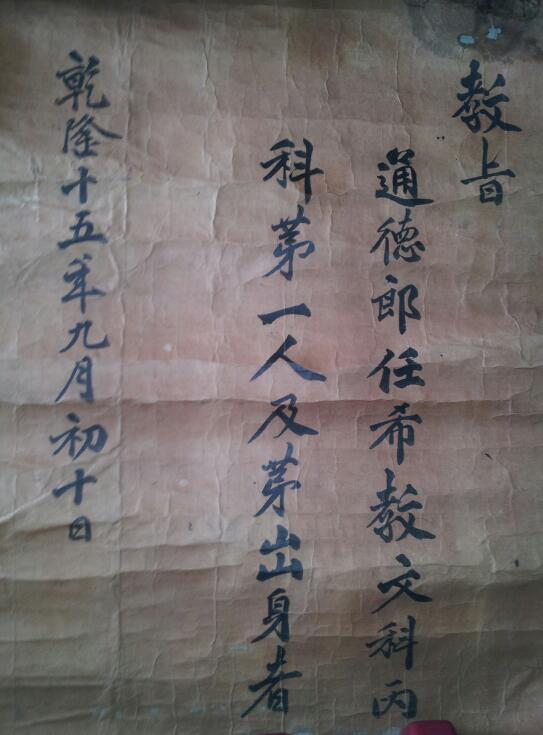 教旨
通德郎任希教文科丙
科苐一人及苐出身者
乾隆十五年九月初十日